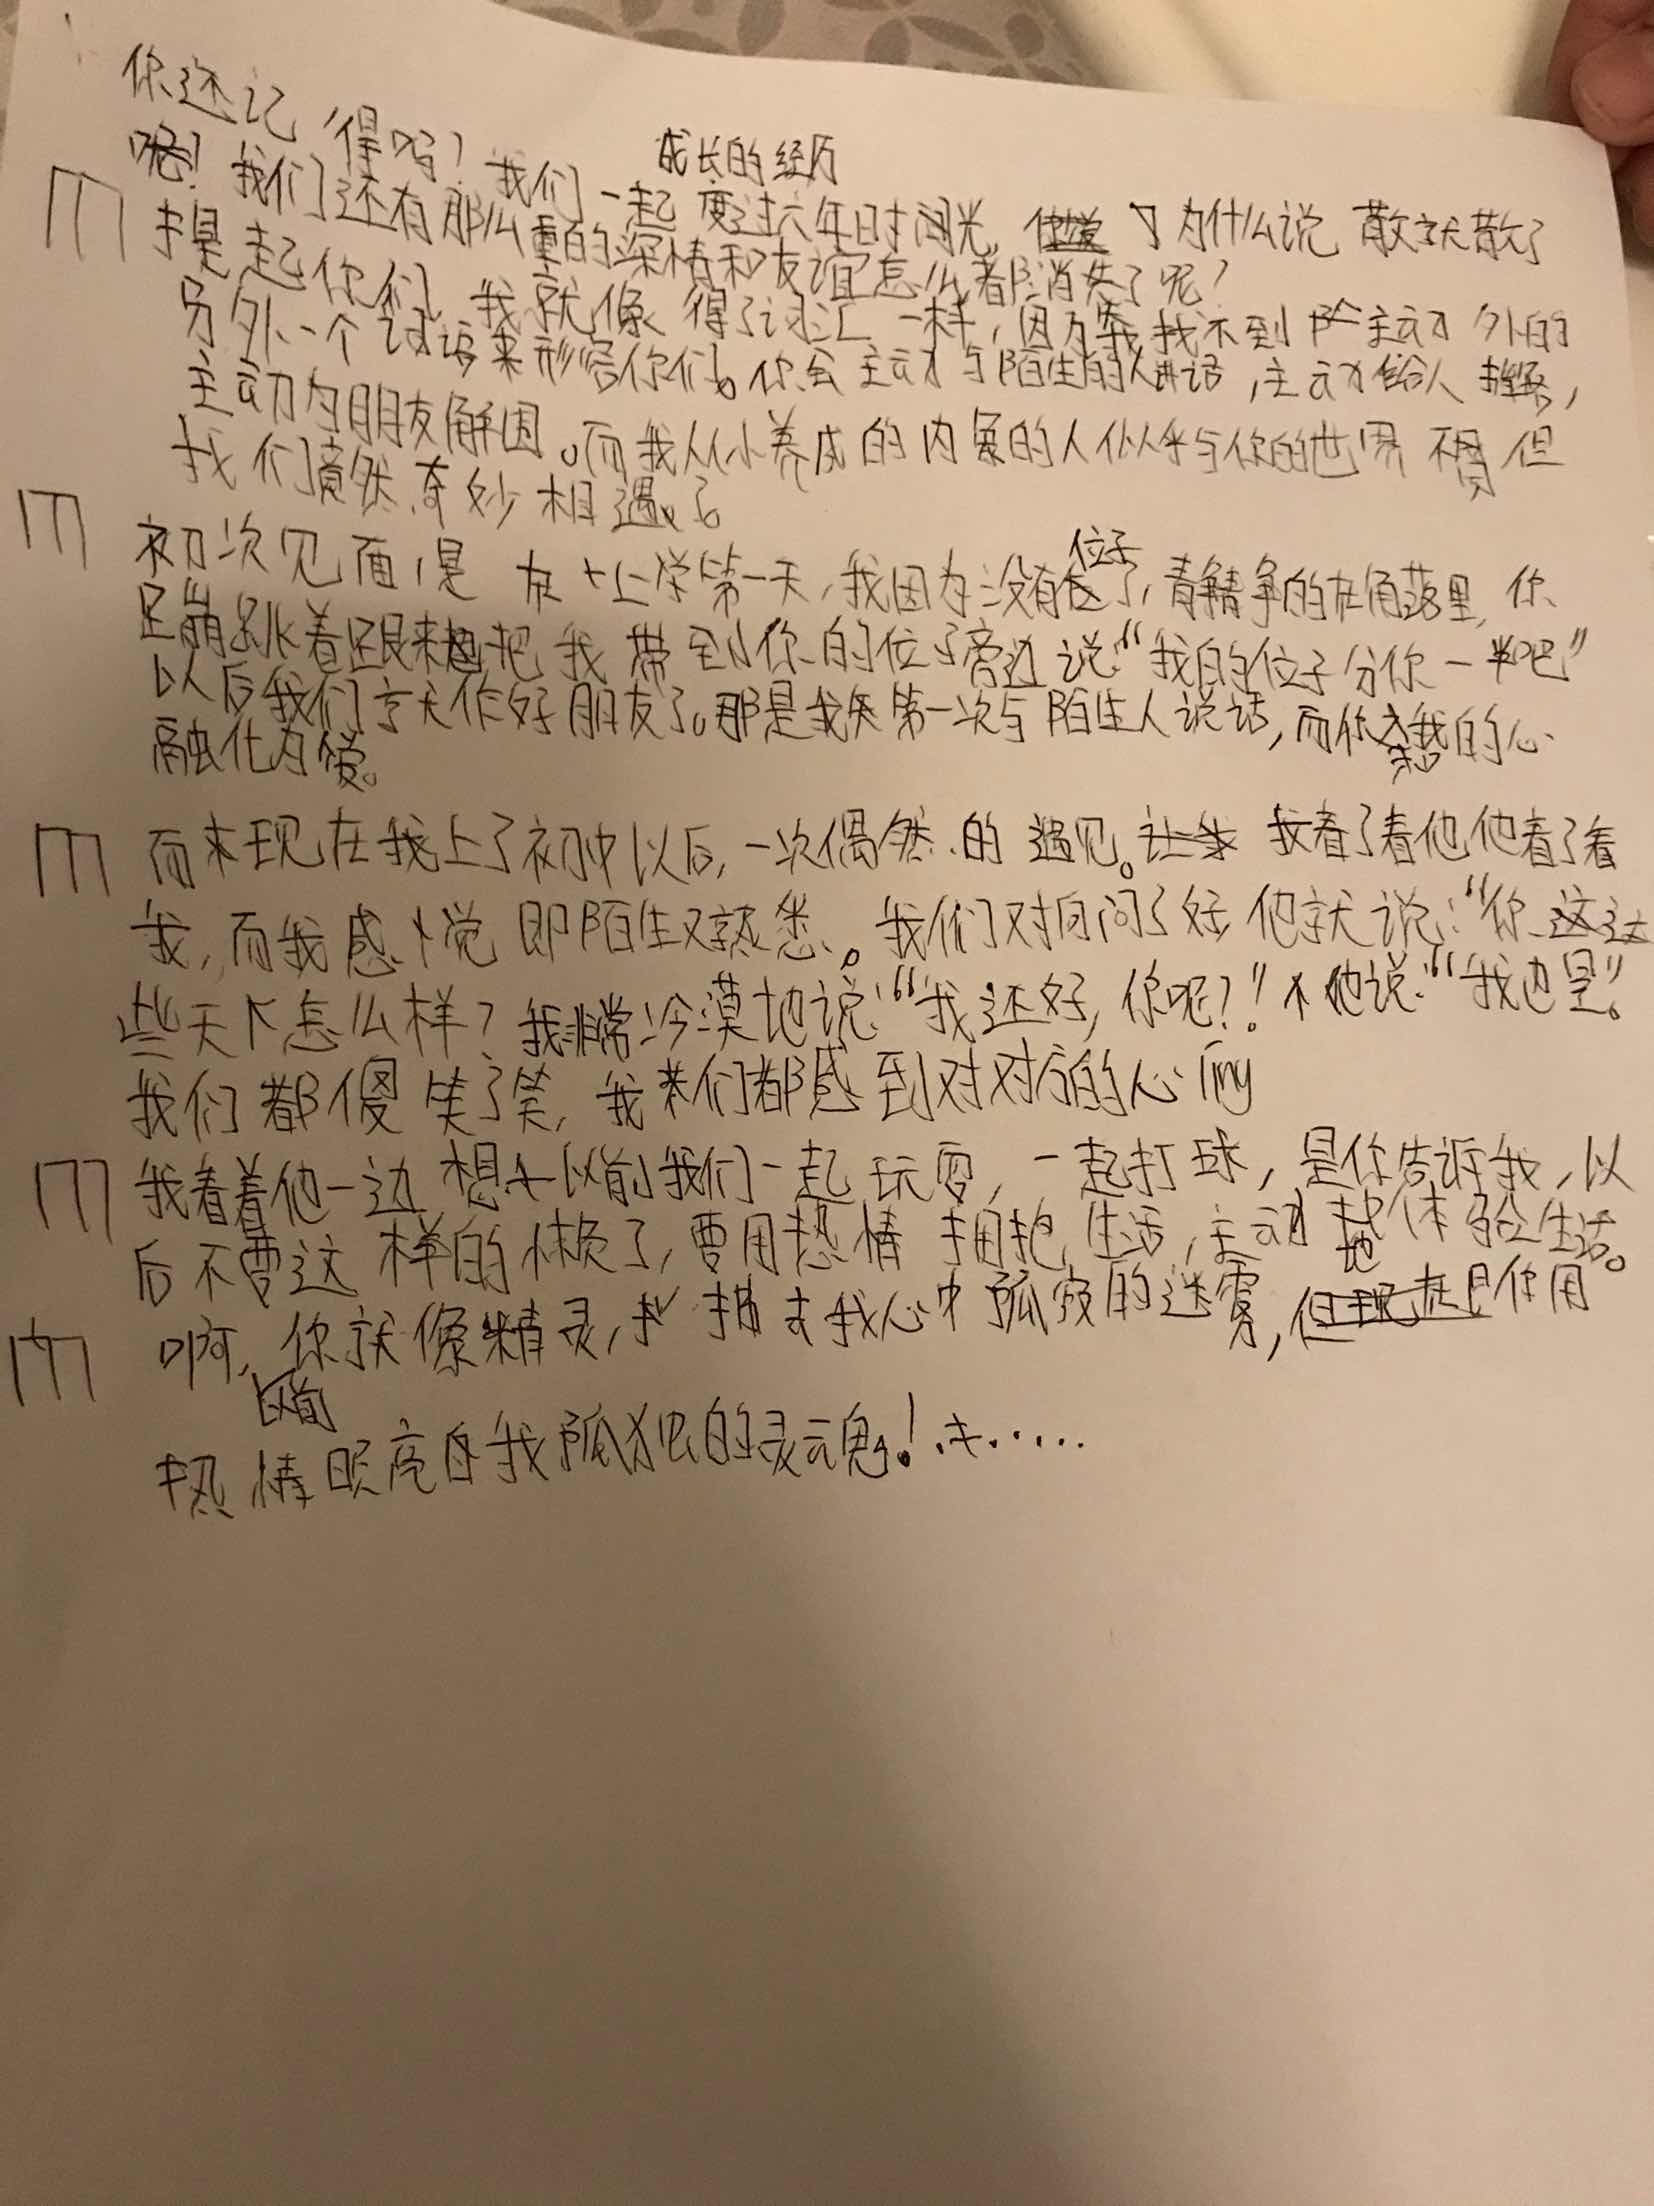 成长的经历
你还记得吗？我们一起度过六年时光，为什么说散就散了
呢！我们还有那么重的深情和友谊怎么都消失了呢？
提起你们，我就像得了词汇一样，因为我找不到除主动外的
另外一个词语来形容你们。你会主动与陌生的人讲话，主动给人
主动为朋友解困。而我从小养成的内象的人似乎与你的世界不 但
我们竟然奇妙相遇了。
初次见面，是在上学第一天，我因为没有位子了，的在角落里，你
蹦跳着 把我带到你的位子旁边说：“我的位子分你一半吧”
以后我们 作好朋友了。那是我第一次与陌生人说话，而你 我的心
融化为爱。
而未现在我上了初中以后，一次偶然的遇见。我看了看他他看了看
我，而我感觉即陌生又熟悉。我们对问了好他就说：“你这
些天下怎么样？我非常冷漠地说：“我还好，你呢？！”他说：“我也是”。
我们都傻笑了笑，我们都感到对对方的心ling
我看着他一边想 以前我们一起玩耍，一起打球，是你告诉我，以
后不要这样的懒了，要用热情拥抱生活，主动地体验生活。
啊，你就像精灵，去我心中孤寂的迷雾，但 你用
热情照亮 我孤独的灵魂！……